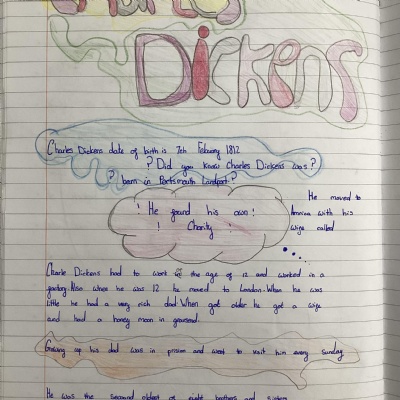 Charles
Dickens
Charles Dickens date of birth is 7th Febuary 1812
? Did you know Charles Dickens was ?
? born in Portsmouth Landport ?
He moved to
America with his
wife called
! He found his own !
! Charity !
Charlie Dickens had to work at the age of 12 and worked in a
factory. Also when he was 12 he moved to London. When he was
little he had a very rich dad. When got older he got a wife
and had a honey moon in gravesend.
Growing up his dad was in prison and went to visit him every sunday.
He was the second oldest of eight brothers and sisters